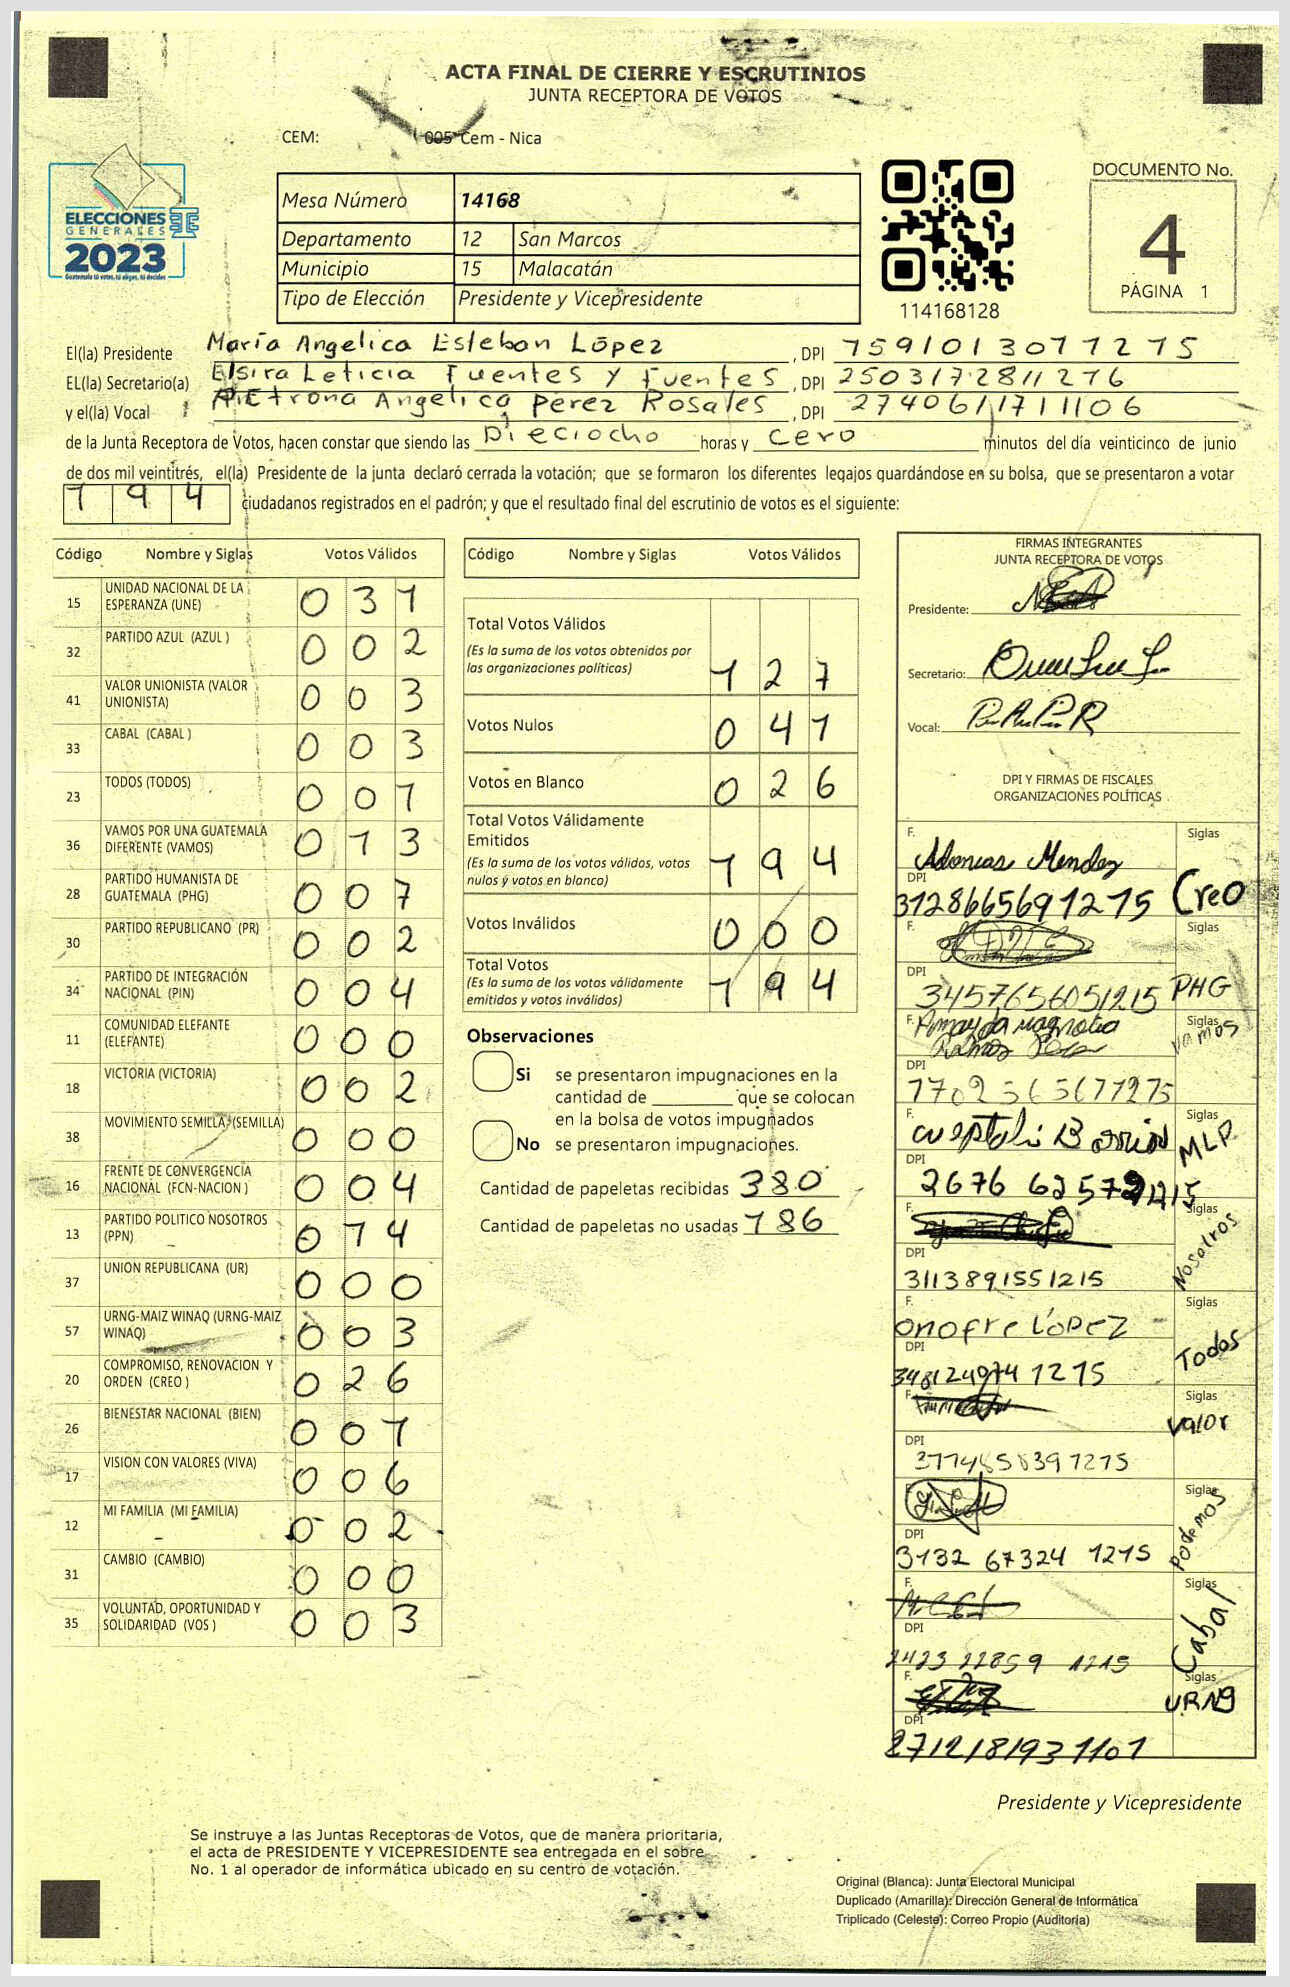 ACTA FINAL DE CIERRE Y ESCRUTINIOS
JUNTA RECEPTORA DE VOTOS
CEM: 005 Cem - Nica
ELECCIONES
GENERALES
2023
Guatemala tú votas, tú eliges, tú decides
Mesa Número 14168
Departamento 12 San Marcos
Municipio 15 Malacatán
Tipo de Elección Presidente y Vicepresidente
114168128
DOCUMENTO No.
4
PÁGINA 1
El(la) Presidente María Angelica Esteban López, DPI 1591013071215
EL(la) Secretario(a) Elsira Leticia Fuentes y Fuentes, DPI 2503172811216
y el(la) Vocal Petrona Angelica Perez Rosales, DPI 2740611711106
de la Junta Receptora de Votos, hacen constar que siendo las Dieciocho horas y cero minutos del día veinticinco de junio
de dos mil veintitrés, el(la) Presidente de la junta declaró cerrada la votación; que se formaron los diferentes legajos guardándose en su bolsa, que se presentaron a votar
194 ciudadanos registrados en el padrón; y que el resultado final del escrutinio de votos es el siguiente:
Código Nombre y Siglas Votos Válidos
15 UNIDAD NACIONAL DE LA ESPERANZA (UNE) 031
32 PARTIDO AZUL (AZUL ) 002
41 VALOR UNIONISTA (VALOR UNIONISTA) 003
33 CABAL (CABAL ) 003
23 TODOS (TODOS) 001
36 VAMOS POR UNA GUATEMALA DIFERENTE (VAMOS) 013
28 PARTIDO HUMANISTA DE GUATEMALA (PHG) 007
30 PARTIDO REPUBLICANO (PR) 002
34 PARTIDO DE INTEGRACIÓN NACIONAL (PIN) 004
11 COMUNIDAD ELEFANTE (ELEFANTE) 000
18 VICTORIA (VICTORIA) 002
38 MOVIMIENTO SEMILLA (SEMILLA) 000
16 FRENTE DE CONVERGENCIA NACIONAL (FCN-NACION ) 004
13 PARTIDO POLITICO NOSOTROS (PPN) 014
37 UNION REPUBLICANA (UR) 000
57 URNG-MAIZ WINAQ (URNG-MAIZ WINAQ) 003
20 COMPROMISO, RENOVACION Y ORDEN (CREO ) 026
26 BIENESTAR NACIONAL (BIEN) 001
17 VISION CON VALORES (VIVA) 006
12 MI FAMILIA (MI FAMILIA) 002
31 CAMBIO (CAMBIO) 000
35 VOLUNTAD, OPORTUNIDAD Y SOLIDARIDAD (VOS ) 003
Código Nombre y Siglas Votos Válidos
Total Votos Válidos
(Es la suma de los votos obtenidos por
las organizaciones políticas) 127
Votos Nulos 041
Votos en Blanco 026
Total Votos Válidamente
Emitidos
(Es la suma de los votos válidos, votos
nulos y votos en blanco) 194
Votos Inválidos 000
Total Votos
(Es la suma de los votos válidamente
emitidos y votos inválidos) 194
Observaciones
Si se presentaron impugnaciones en la
cantidad de ________ que se colocan
en la bolsa de votos impugnados
No se presentaron impugnaciones.
Cantidad de papeletas recibidas 380
Cantidad de papeletas no usadas 186
FIRMAS INTEGRANTES
JUNTA RECEPTORA DE VOTOS
Presidente:
Secretario:
Vocal:
DPI Y FIRMAS DE FISCALES
ORGANIZACIONES POLÍTICAS
F. Adoncas Mendez Siglas
DPI 3128665691215 Creo
F. Siglas
DPI 3457656051215 PHG
F. Siglas Vamos
DPI
F. Siglas MLP
DPI
F. Siglas Nosotros
DPI 3113891551215
F. Onofre López Siglas
DPI 3481249741215 Todos
F. Siglas Valor
DPI
F. Siglas Podemos
DPI 3132 67324 1215
F. Siglas Cabal
DPI 2423 22859 1215
F. Siglas URNG
DPI 2712181931101
Presidente y Vicepresidente
Se instruye a las Juntas Receptoras de Votos, que de manera prioritaria,
el acta de PRESIDENTE Y VICEPRESIDENTE sea entregada en el sobre
No. 1 al operador de informática ubicado en su centro de votación.
Original (Blanca): Junta Electoral Municipal
Duplicado (Amarilla): Dirección General de Informática
Triplicado (Celeste): Correo Propio (Auditoría)